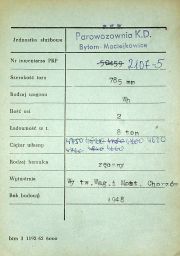 Jednostka służbowa
Parowozownia K.D.
Bytom-Maciejkowice
Nr inwentarza PKP 50459 2107-5
Szerokość toru 785 mm
Rodzaj wagonu Wh
Ilość osi 2
Ładowność w t. 8 ton
Ciężar własny 4750 4620
4760
Rodzaj hamulca ręczny
Wytwórnia tw.Wag.i Most. Chorzów
Rok budowy 1948